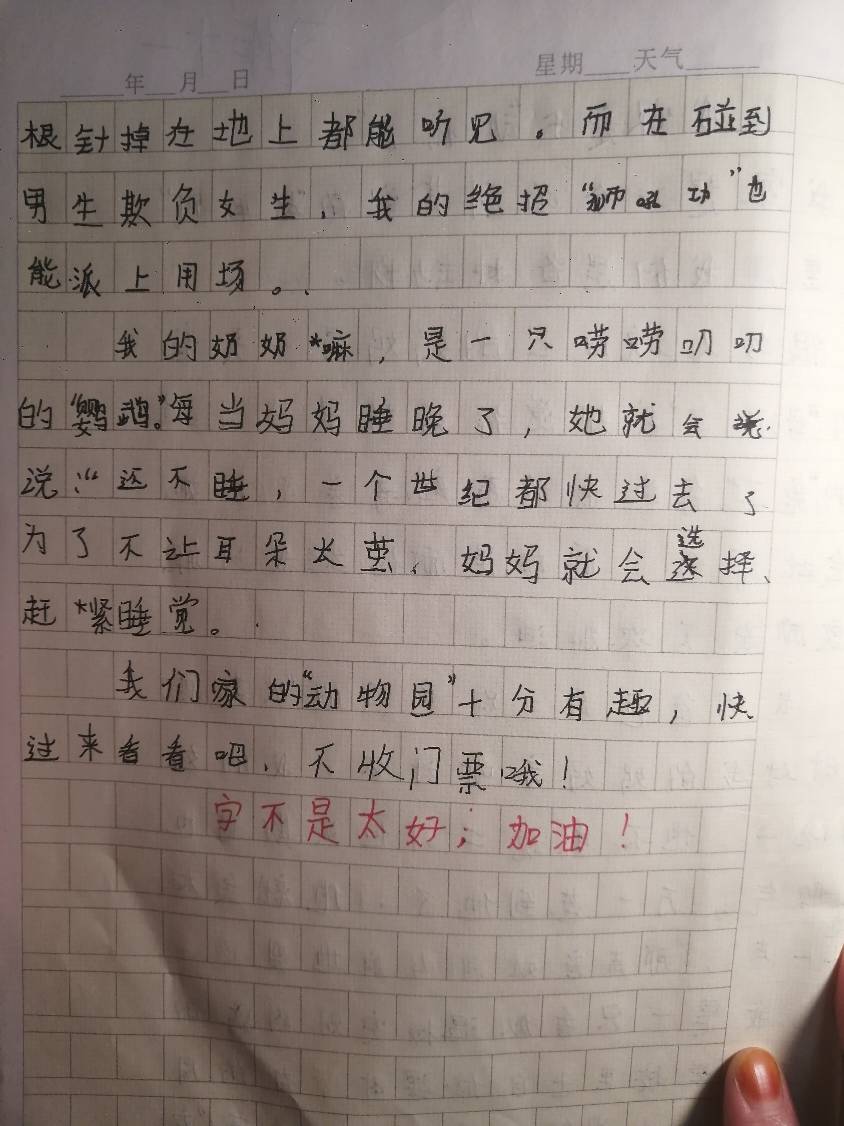 年 月 日 星期 天气
根针掉在地上都能听见。而在碰到
男生欺负女生，我的绝招“狮吼功”也
能派上用场。
我的奶奶*嘛，是一只唠唠叨叨
的“鹦鹉”。每当妈妈睡晚了，她就会说
说：“还不睡，一个世纪都快过去了
为了不让耳朵长茧，妈妈就会选择
赶*紧睡觉。
我们家的“动物园”十分有趣，快
过来看看吧，不收门票哦！
字不是太好；加油！